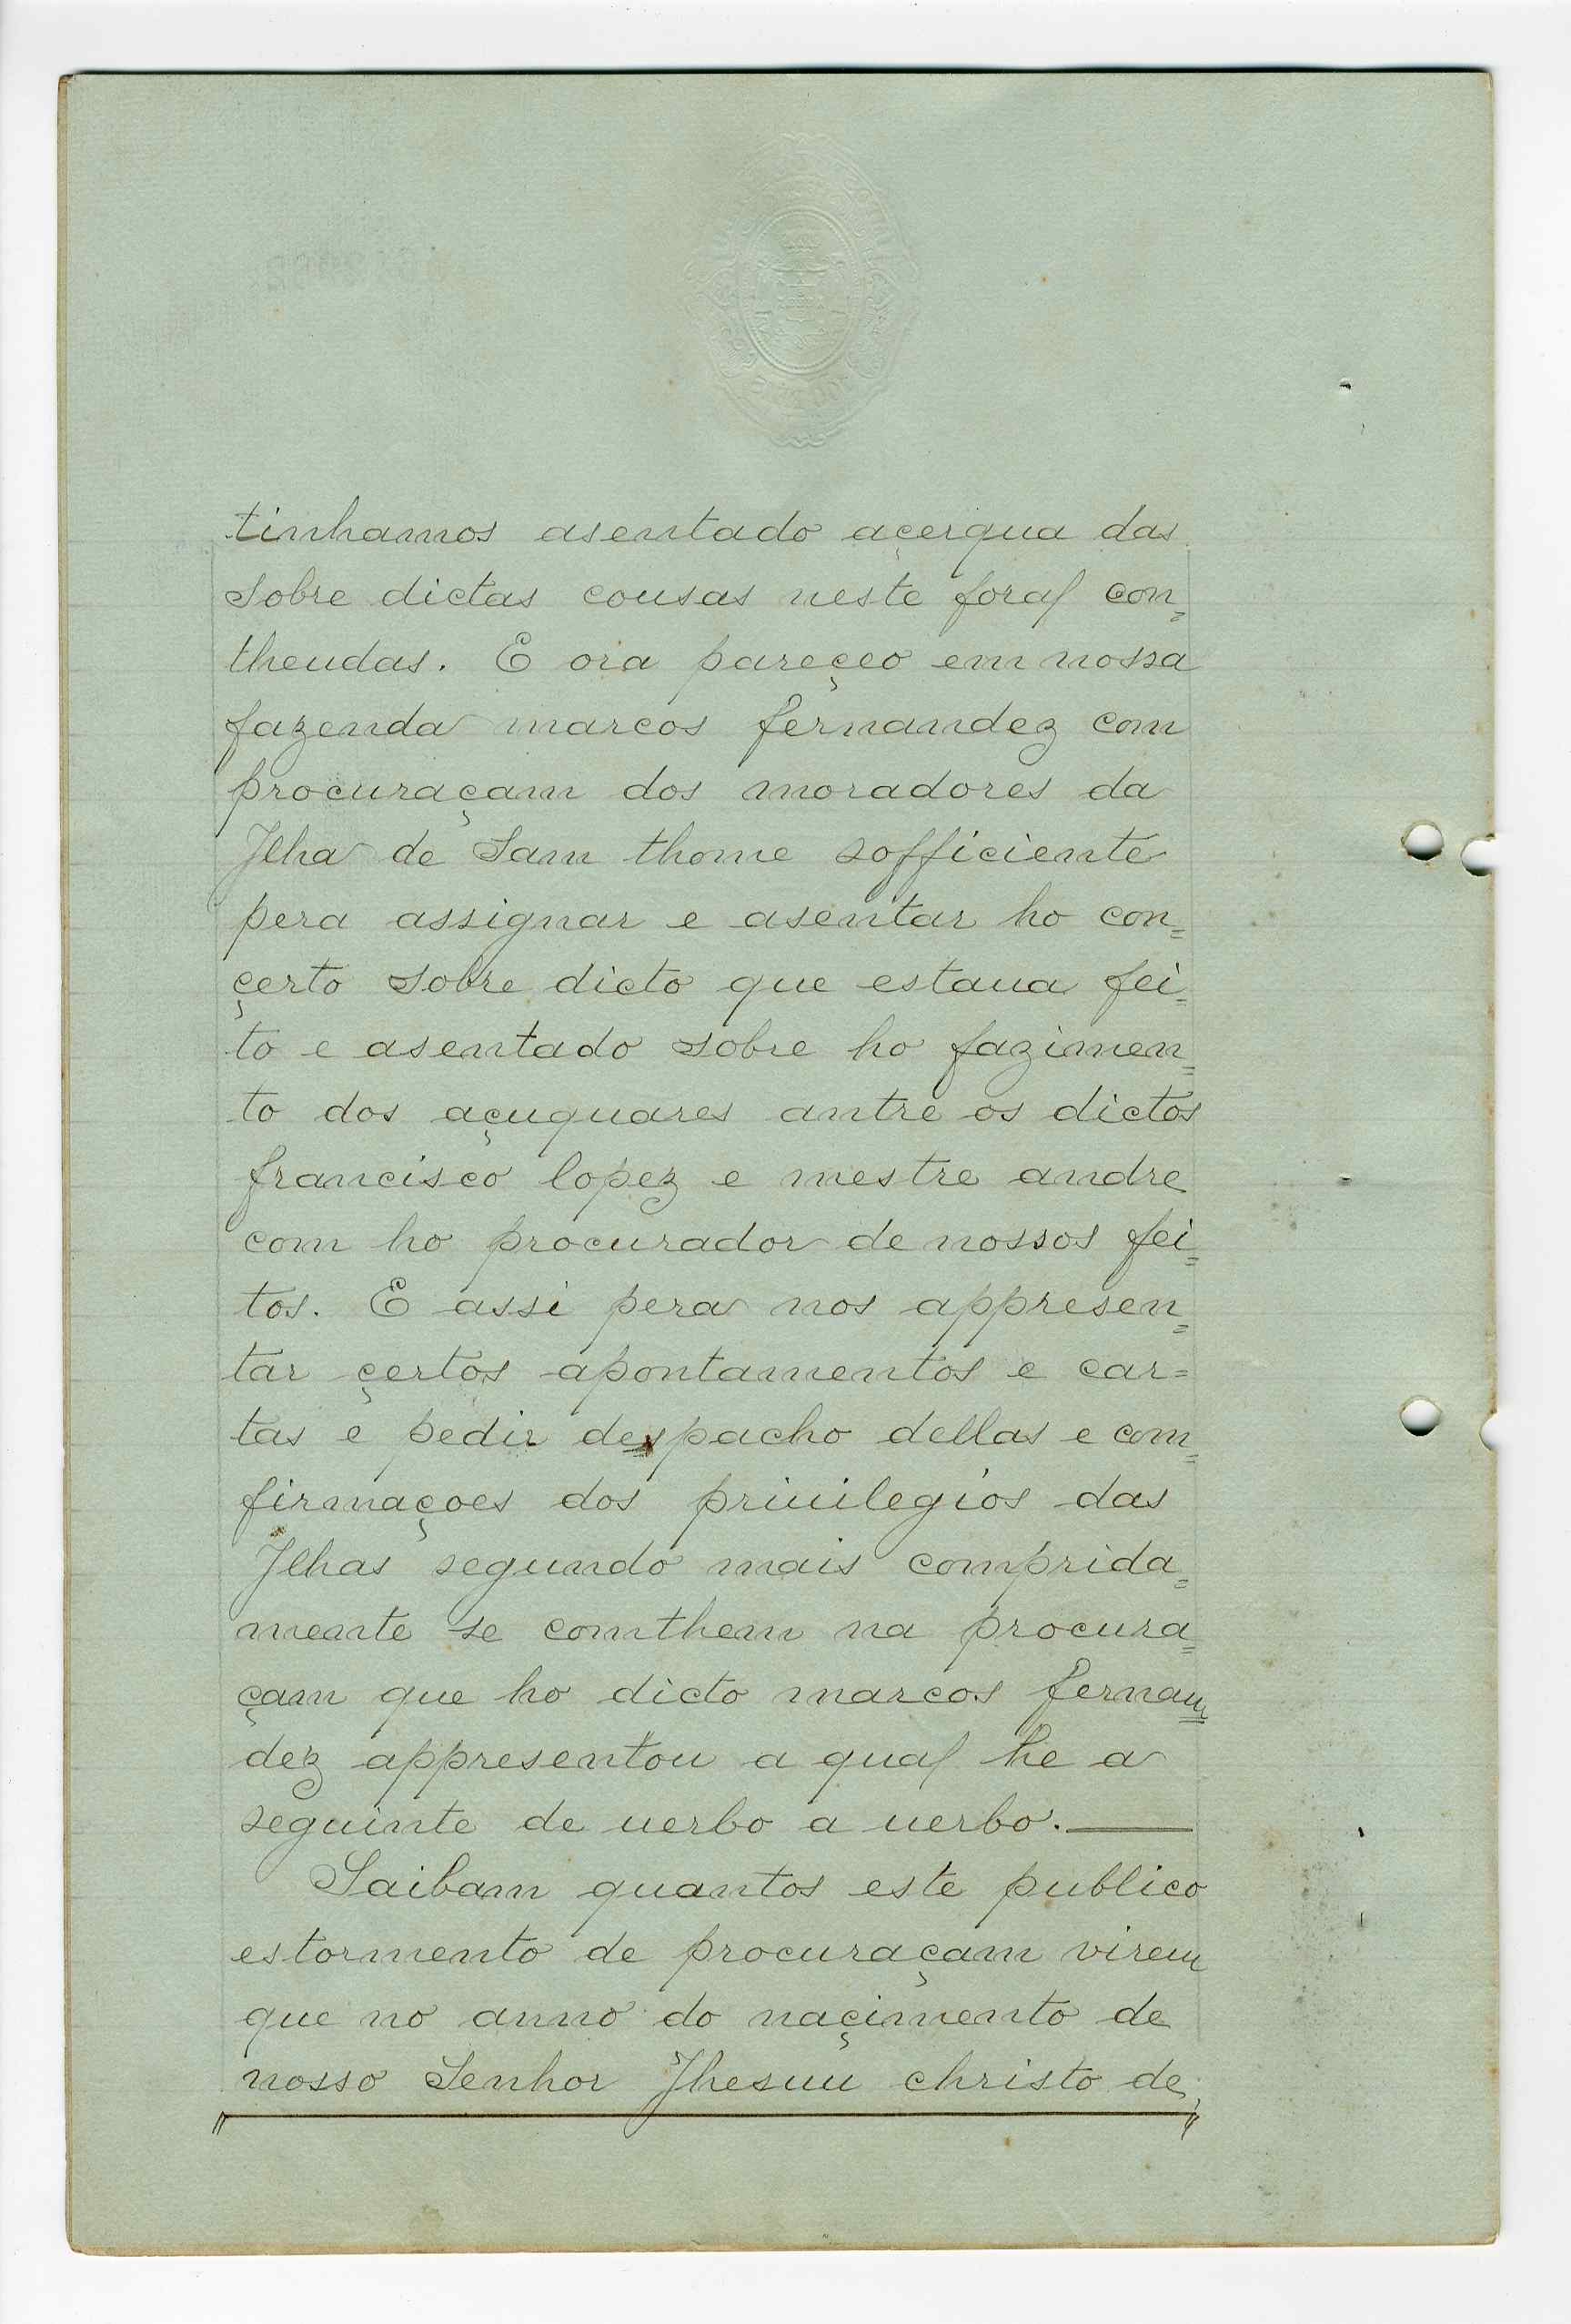 tinhamos asentado açerqua das
sobre dictas cousas neste foral con=
theudas. E ora pareçeo em nossa
fazenda marcos fernandez com
procuraçam dos moradores da
Jlha de Sam thome sofficiente
pera assignar e asentar ho con=
çerto sobre dicto que estaua fei=
to e asentado sobre ho fazimen=
to dos açuquares antre os dictos
francisco lopez e mestre andre
com ho procurador de nossos fei=
tos. E assi pera nos appresen=
tar çertos apontamentos e car=
tas e pedir despacho dellas e com=
firmaçoes dos priuilegios das
Jlhas segundo mais comprida=
mente se comthem na procura=
çam que ho dicto marcos fernan=
dez appresentou a qual he a
seguinte de uerbo a uerbo.
Saibam quantos este publico
estormento de procuraçam virem
que no anno do naçimento de
nosso Senhor Jhesuu christo de